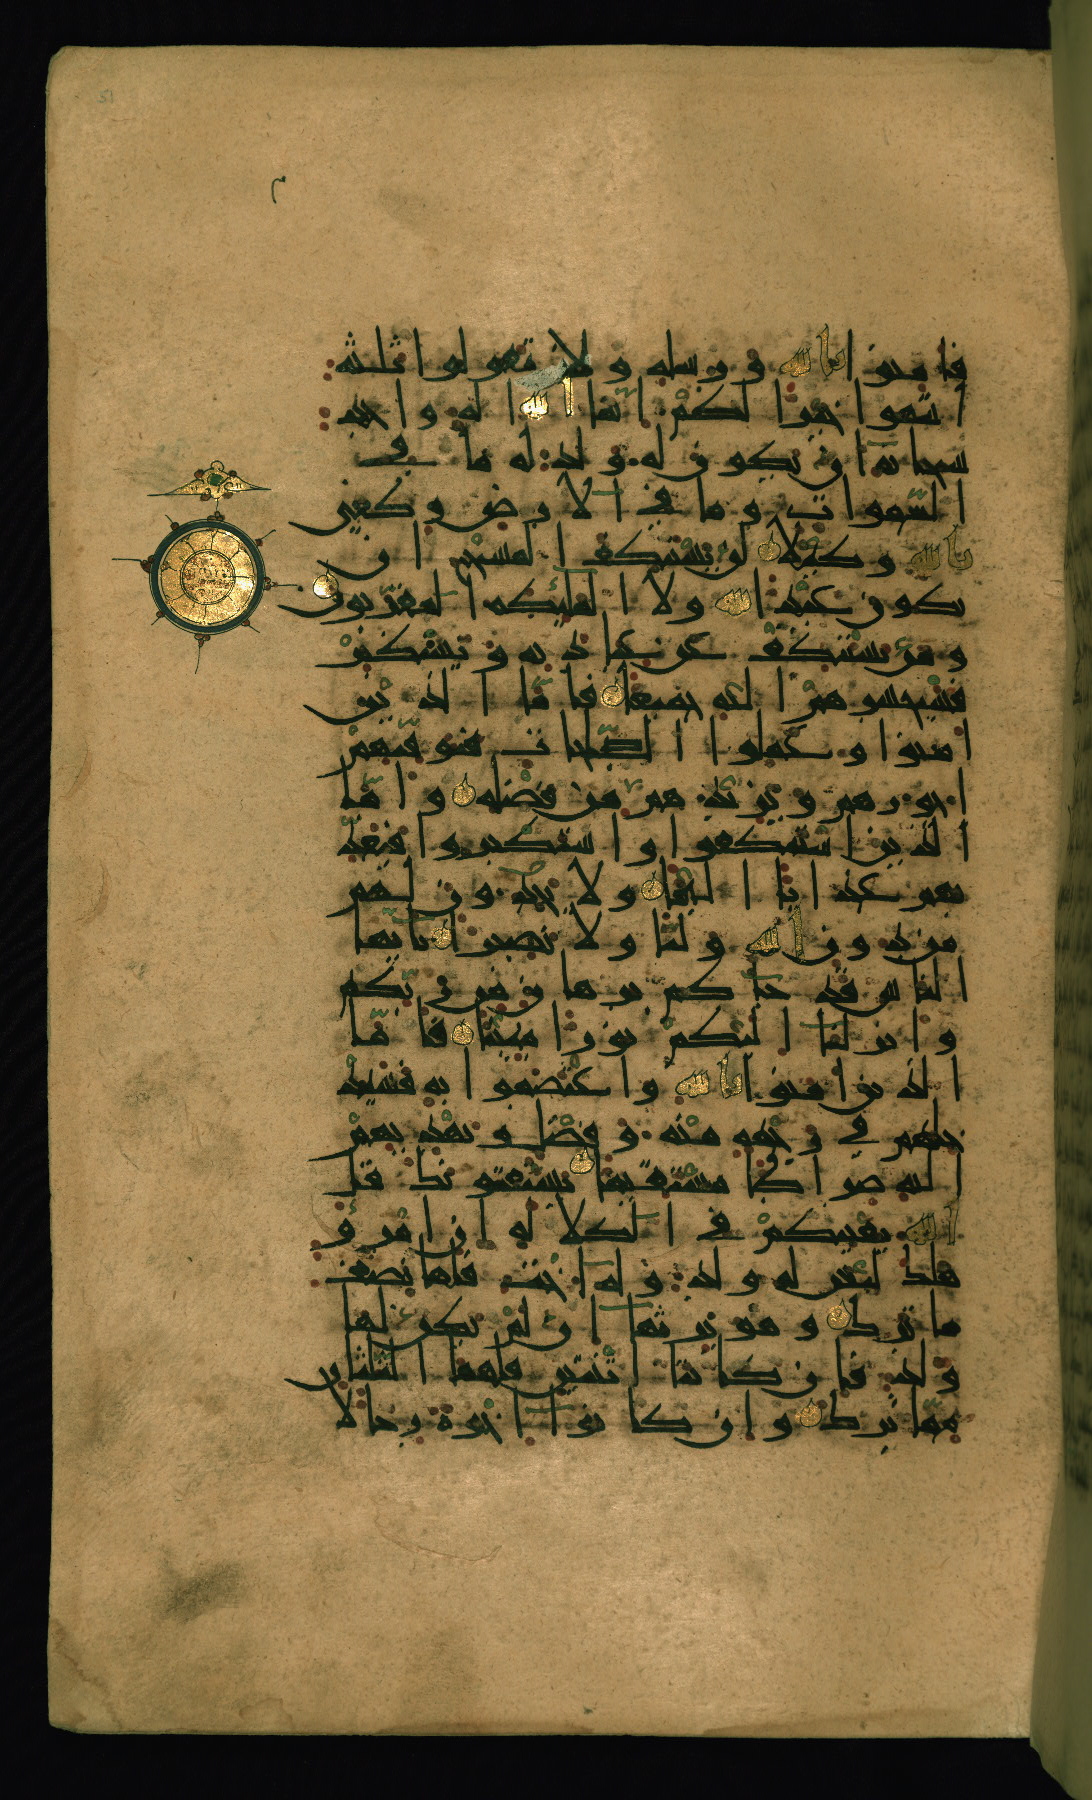 فامنوا بالله ورسله ولا تقولوا ثلثة
انتهوا خيرا لكم انما الله اله واحد
سبحانه ان يكون له ولد له ما في
السموات وما في الارض وكفى
بالله وكيلا لن يستنكف المسيح ان
يكون عبد الله ولا المليكة المقربون
ومن يستنكف عن عبادته ويستكبر
فسيحشرهم اليه جميعا فاما الذين
امنوا وعملوا الصلحات فيوفيهم
اجورهم ويزيدهم من فضله واما
الذين استنكفوا واستكبروا فيعذ
بهم عذابا اليما ولا يجدون لهم
من دون الله وليا ولا نصيرا يايها
الناس قد جاكم برهان من ربكم
وانزلنا اليكم نورا مبينا فاما
الذين امنوا بالله واعتصموا به فسيد
خلهم في رحمة منه وفضل ويهديهم
اليه صراطا مستقيما يستفتونك قل
الله يفتيكم في الكلالة ان امرؤ
هلك ليس له ولد وله اخت فلها نصف
ما ترك وهو يرثها ان لم يكن لها
ولد فان كانتا اثنتين فلهما الثلثان
مما ترك وان كانوا اخوة رجالا
51